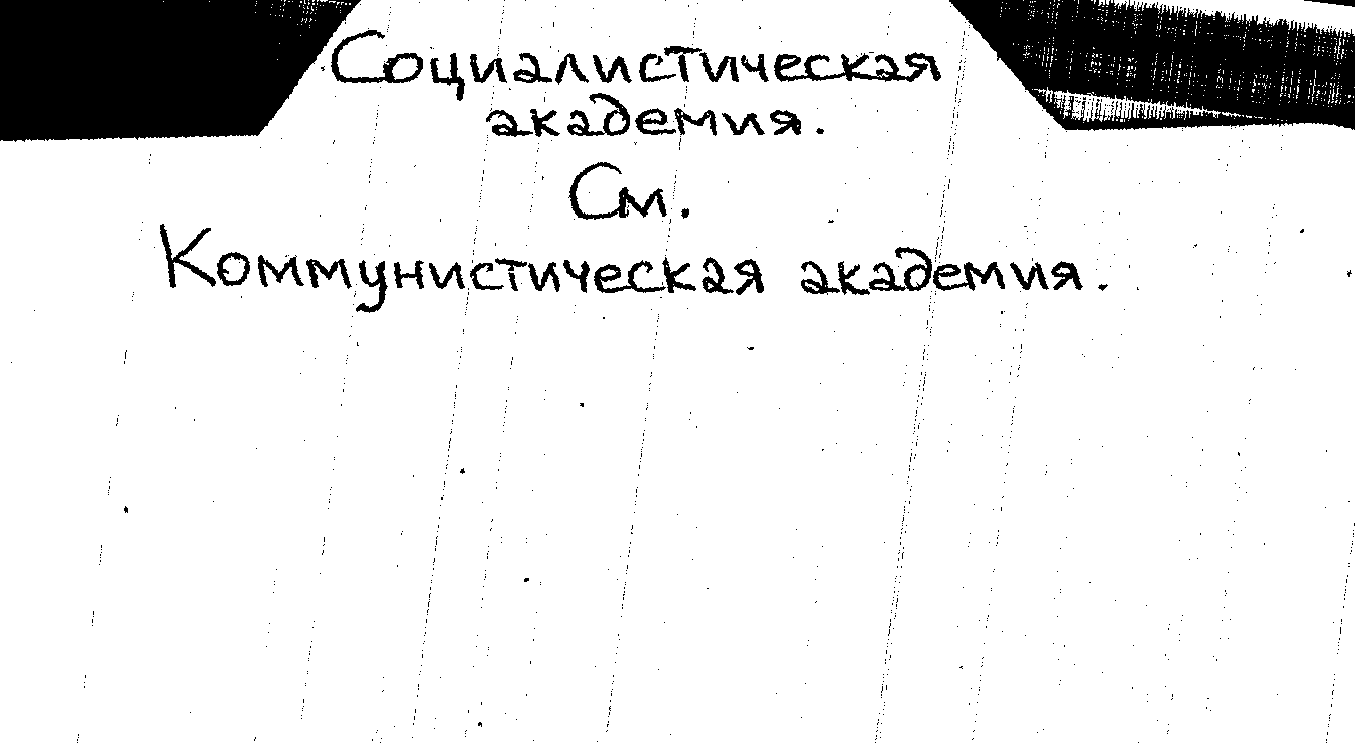 Социалистическая
академия.
См.
Коммунистическая академия.